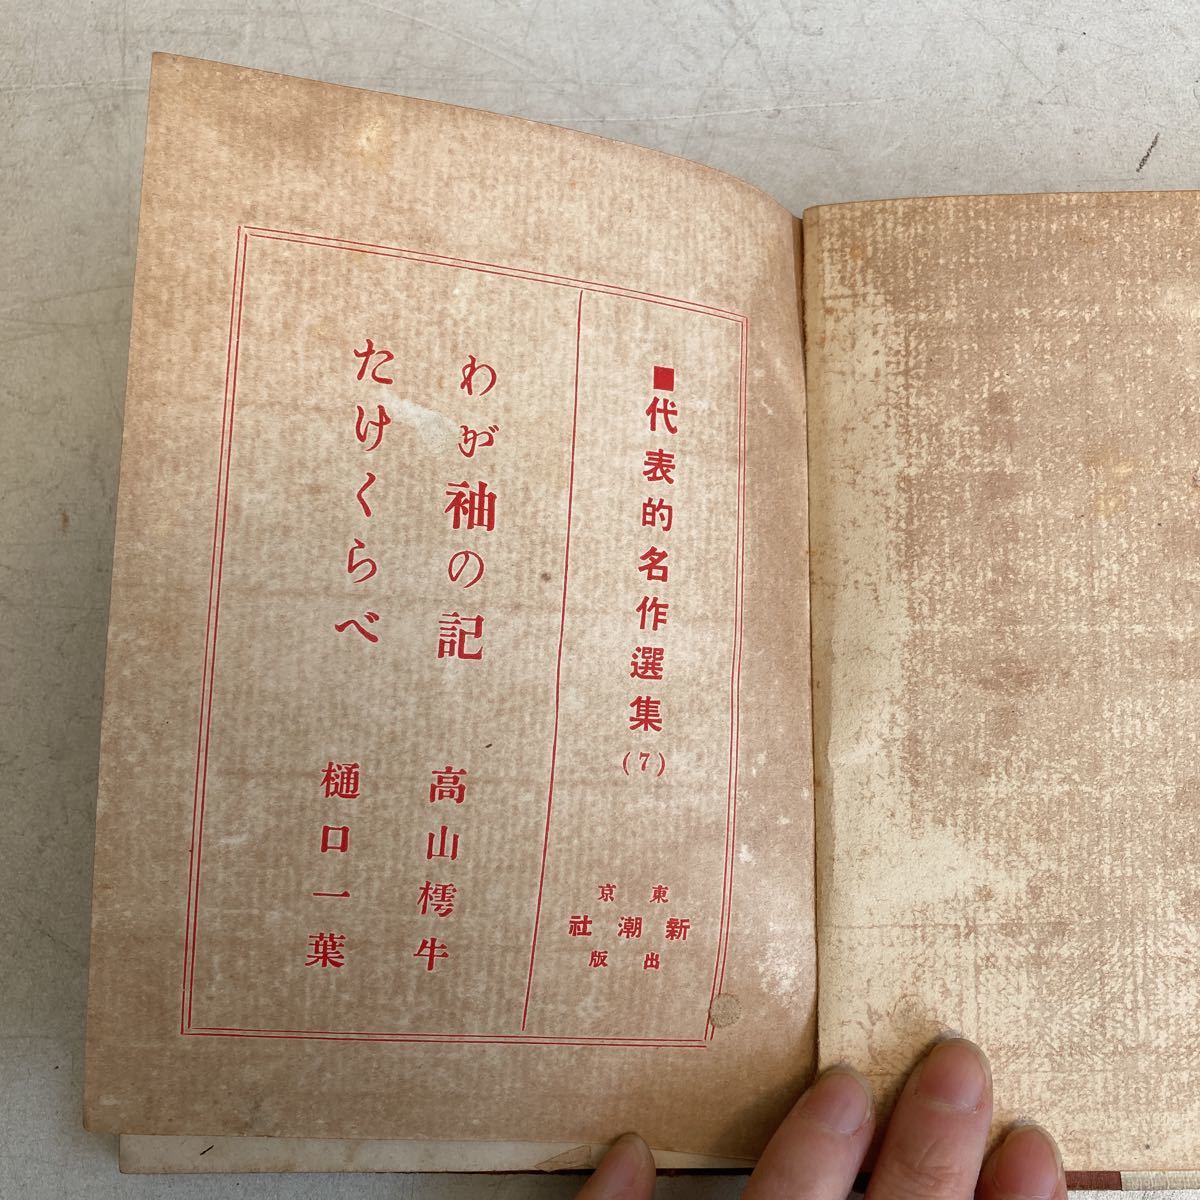 ■代表的名作選集(7)
東京
新潮社
出版
わが袖の記 高山樗牛
たけくらべ 樋口一葉